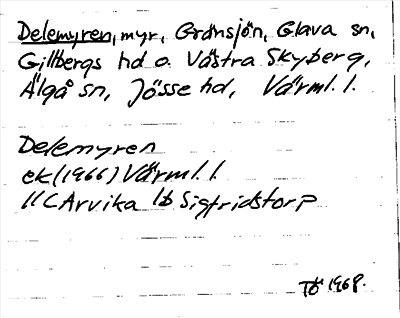 Delemyren, myr, Gränsjön, Glava sn,
Gillbergs hd o. Västra Skyberg,
Älgå sn, Jösse hd, Värml. l.
Delemyren
ek (1966) Värml. l
11C Arvika 1b Sigfridstorp
TÖ 1968.